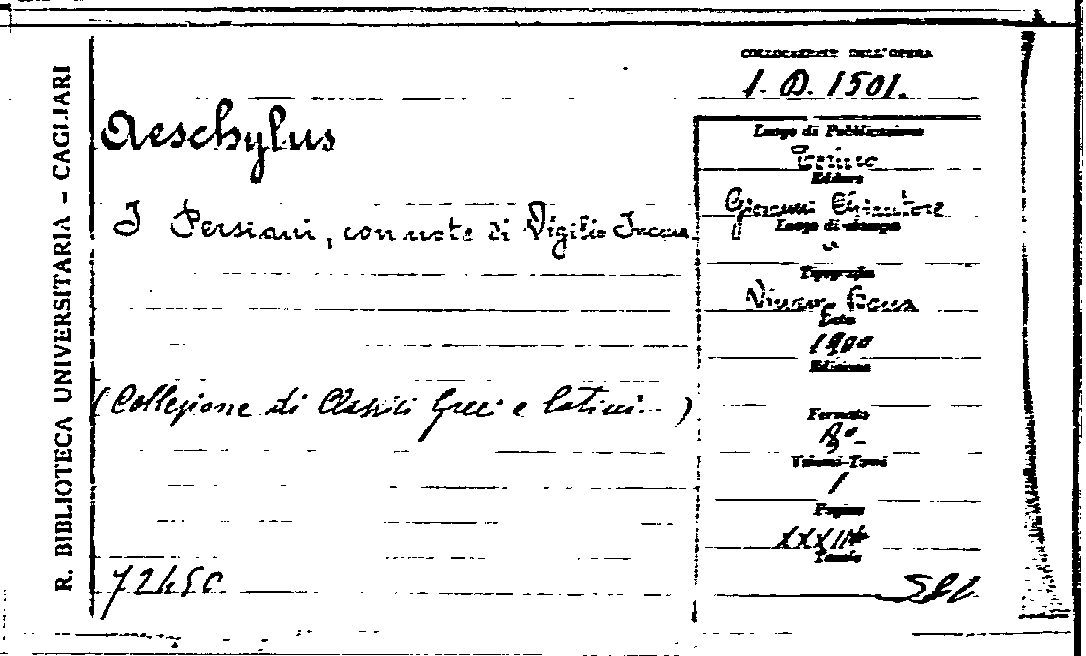 R. BIBLIOTECA UNIVERSITARIA - CAGLIARI
COLLOCAZIONE DELL'OPERA
1. D. 1501.
Aeschylus
I Persiani, con note di Vigilio Inama.
(Collezione di Classici Greci e Latini )
72450
Luogo di Pubblicazione
Torino
Editore
Giovanni Chiantore
Luogo di stampa
Tipografia
Vincenzo Bona
Data
1900
Edizione
Formato
8º
Volumi-Tomi
1
Pagine
Tavole